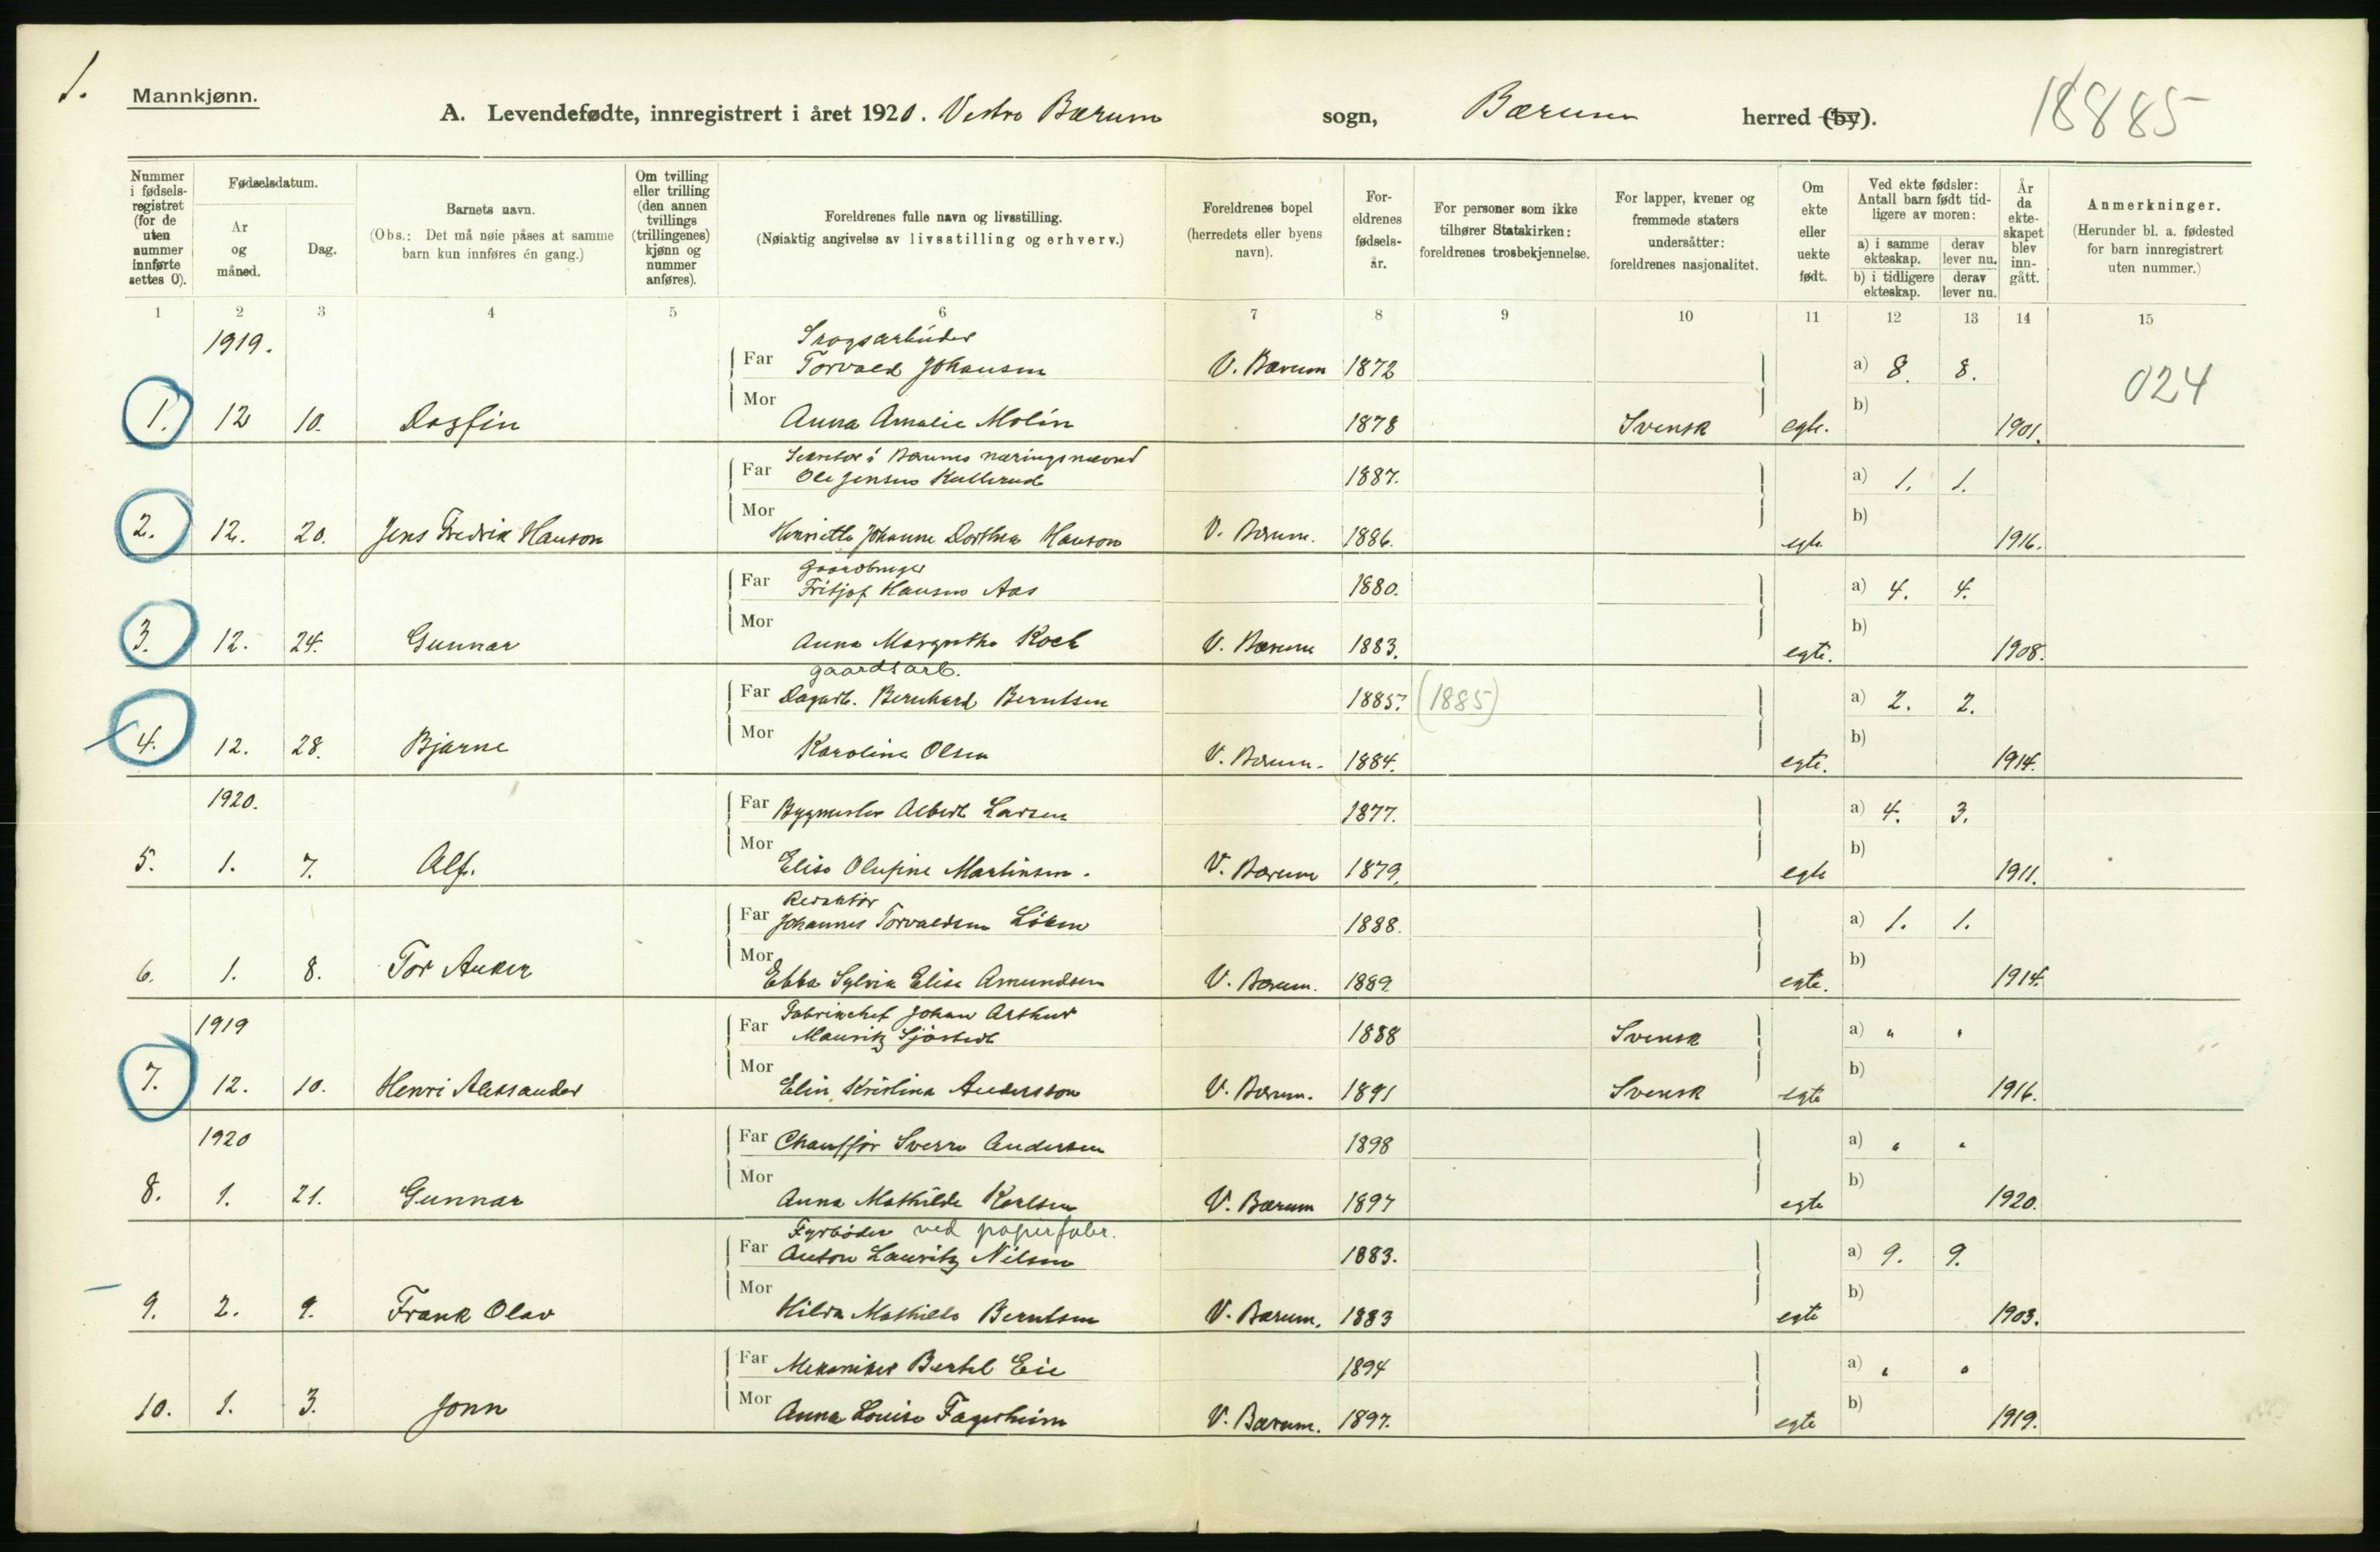 1.
Mannkjønn.
A. Levendefødte, innregistrert i året 1920. Vestre Bærum sogn, Bærum herred (by).
18885
Nummer i fødselsregistret (for de uten nummer innførte settes 0).
Fødselsdatum.
År og måned.
Dag.
Barnets navn.
(Obs.: Det må nøie påses at samme barn kun innføres én gang.)
Om tvilling eller trilling (den annen tvillings (trillingenes) kjønn og nummer anføres).
Foreldrenes fulle navn og livsstilling.
(Nøiaktig angivelse av livsstilling og erhverv.)
Foreldrenes bopel (herredets eller byens navn).
Foreldrenes fødselsår.
For personer som ikke tilhører Statskirken: foreldrenes trosbekjennelse.
For lapper, kvener og fremmede staters undersåtter: foreldrenes nasjonalitet.
Om ekte eller uekte født.
Ved ekte fødsler: Antall barn født tidligere av moren:
a) i samme ekteskap. derav lever nu.
b) i tidligere ekteskap. derav lever nu.
År da ekteskapet blev inngått.
Anmerkninger.
(Herunder bl. a. fødested for barn innregistrert uten nummer.)
1 2 3 4 5 6 7 8 9 10 11 12 13 14 15
1919. Skogsarbeider
Far Torvald Johansen V. Bærum 1872 a) 8. 8. 024
1. 12 10. Dagfin Mor Anna Amalie Molin 1878 Svensk egte. b) 1901.
Sekretær i Bærums næringsnævnd
Far Ole Jensen Kullerud 1887. a) 1. 1.
2. 12. 20. Jens Fredrik Hanson Mor Henriette Johanne Dorthea Hanson V. Bærum. 1886. egte b) 1916.
Gaardbruger
Far Fritjof Hansen Aas 1880. a) 4. 4.
3. 12. 24. Gunnar Mor Anna Margrethe Koch V. Bærum 1883. egte. b) 1908.
gaardsarb.
Far Dagarb. Bernhard Berntsen 1885? (1885) a) 2. 2.
4. 12. 28. Bjarne Mor Karoline Olsen V. Bærum. 1884. egte. b) 1914.
1920. Far Bygmester Albert Larsen 1877. a) 4. 3.
5. 1. 7. Alf. Mor Elise Olufine Martinsen. V. Bærum 1879. egte b) 1911.
Redaktør
Far Johannes Torvaldsen Løken 1888. a) 1. 1.
6. 1. 8. Tor Anker Mor Ebba Sylvia Elise Amundsen V. Bærum. 1889 egte. b) 1914.
1919 Fabrikchef Johan Arthur
Far Mauritz Sjöstedt 1888 Svensk a) " "
7. 12. 10. Henri Aleksander Mor Elin Kristina Andersson V. Bærum. 1891 Svensk egte b) 1916.
1920 Far Chauffør Sverre Andersen 1898 a) " "
8. 1. 21. Gunnar Mor Anna Mathilde Karlsen V. Bærum 1897 egte b) 1920.
Fyrbøder ved papirfabr.
Far Anton Lauritz Nilsen 1883. a) 9. 9.
9. 2. 9. Frank Olav Mor Hilda Mathilde Berntsen V. Bærum. 1883 egte b) 1903.
Far Mekaniker Bertel Eie 1894 a) " "
10. 1. 3. Jonn Mor Anna Louise Fagerheim V. Bærum. 1897. egte b) 1919.